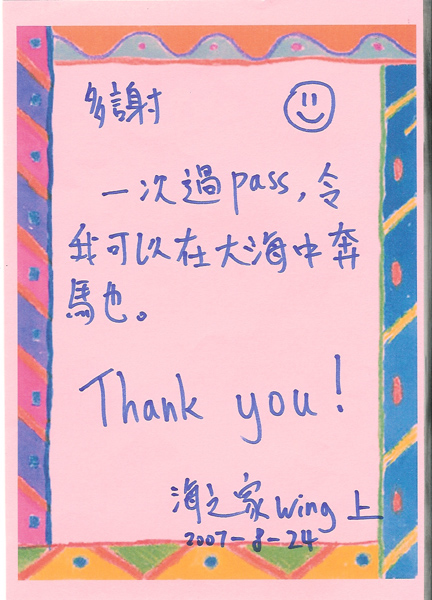 多謝
一次過pass，令
我可以在大海中奔
馬也。
Thank you!
海之家wing上
2007-8-24